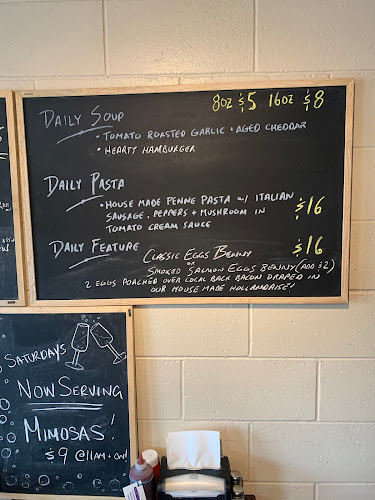 8oz $5 16oz $8
Daily Soup
• Tomato Roasted Garlic + Aged Cheddar
• Hearty Hamburger
Daily Pasta
• House made Penne Pasta w/ Italian
Sausage, Peppers + Mushroom in
Tomato Cream Sauce
$16
Daily Feature
Classic Eggs Benny
$16
or
Smoked Salmon Eggs Benny (add $2)
2 eggs poached over local back bacon draped in
our house made hollandaise!
Saturdays
Now Serving
Mimosas!
$9 @11am + on!